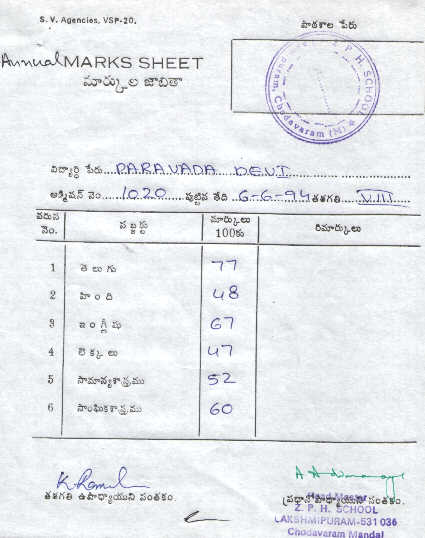 S. V. Agencies, VSP-20.
పాఠశాల పేరు
Annual MARKS SHEET
మార్కుల జాబితా
Z. P. H. SCHOOL
Chodavaram (M)
విద్యార్థి పేరు PARAVADA DEVI
అడ్మిషన్ నెం. 1020 పుట్టిన తేది 6-6-94 తరగతి VIII
వరుస నెం. సబ్జక్టు మార్కులు 100కు రిమార్కులు
1 తెలుగు 77
2 హింది 48
3 ఇంగ్లీషు 67
4 లెక్కలు 47
5 సామాన్యశాస్త్రము 52
6 సాంఘికశాస్త్రము 60
తరగతి ఉపాధ్యాయుని సంతకం.
ప్రధానోపాధ్యాయుని సంతకం.
Head Master
Z. P. H. SCHOOL
LAKSHMIPURAM-531 036
Chodavaram Mandal